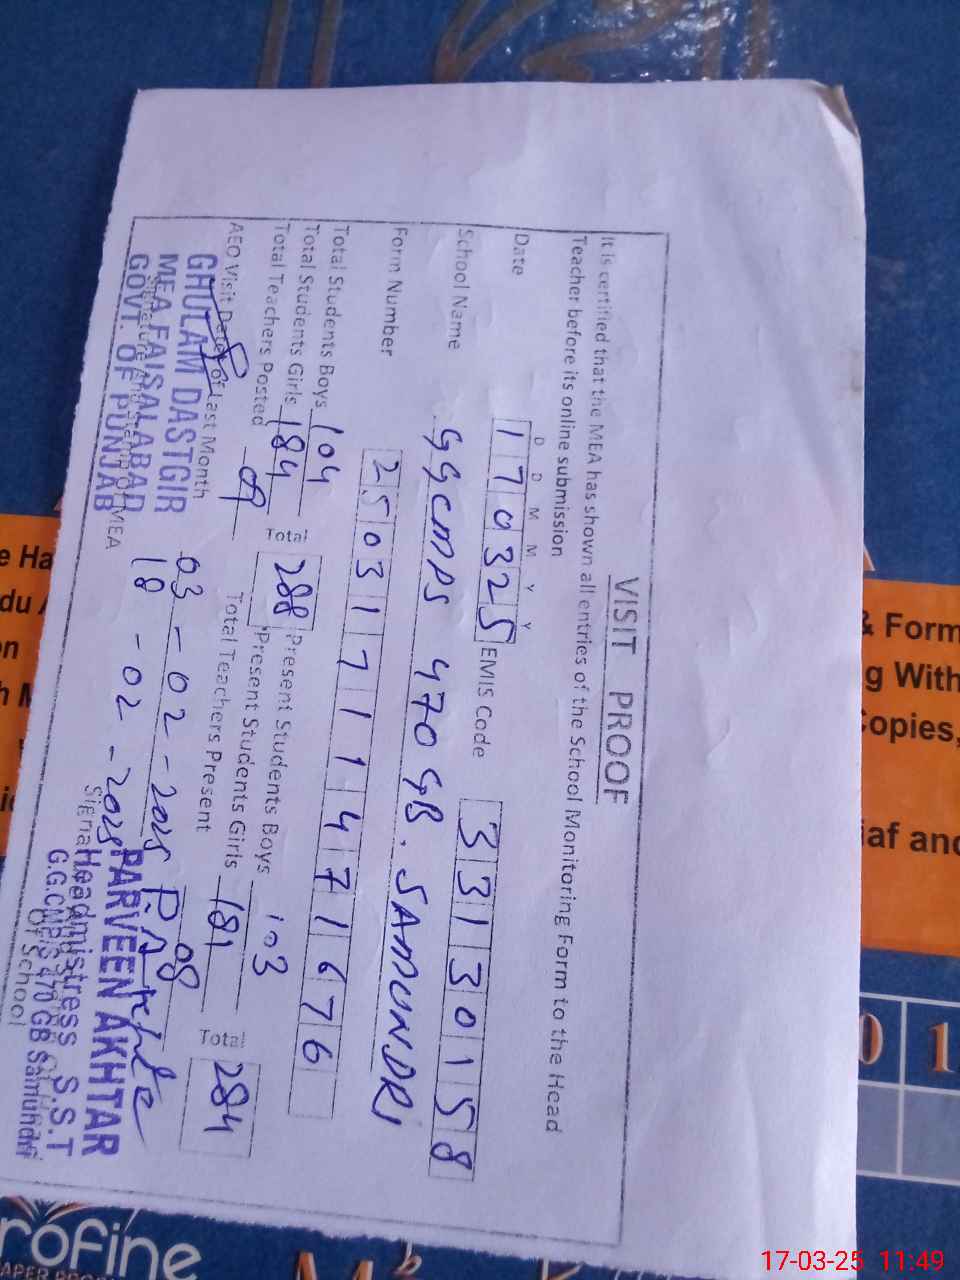 VISIT PROOF
It is certified that the MEA has shown all entries of the School Monitoring Form to the Head
Teacher before its online submission
D D M M Y Y
Date 170325 EMIS Code 33130158
School Name GGCMPS 470 GB. SAMUNDRI
Form Number 25031711471676
Total Students Boys 104 Total 288 Present Students Boys 103 Total 284
Total Students Girls 184 Present Students Girls 181
Total Teachers Posted 09 Total Teachers Present 08
AEO Visit Date of Last Month 03-02-2025
18-02-2025
GHULAM DASTGIR
MEA FAISALABAD
GOVT. OF PUNJAB
MEA
PARVEEN AKHTAR
Headmistress S.S.T
G.G.CMP/S 470 GB Samundri
Of School
e Ha
du
on
& Form
g With
Copies,
iaf and
0 1
rofine
17-03-25 11:49